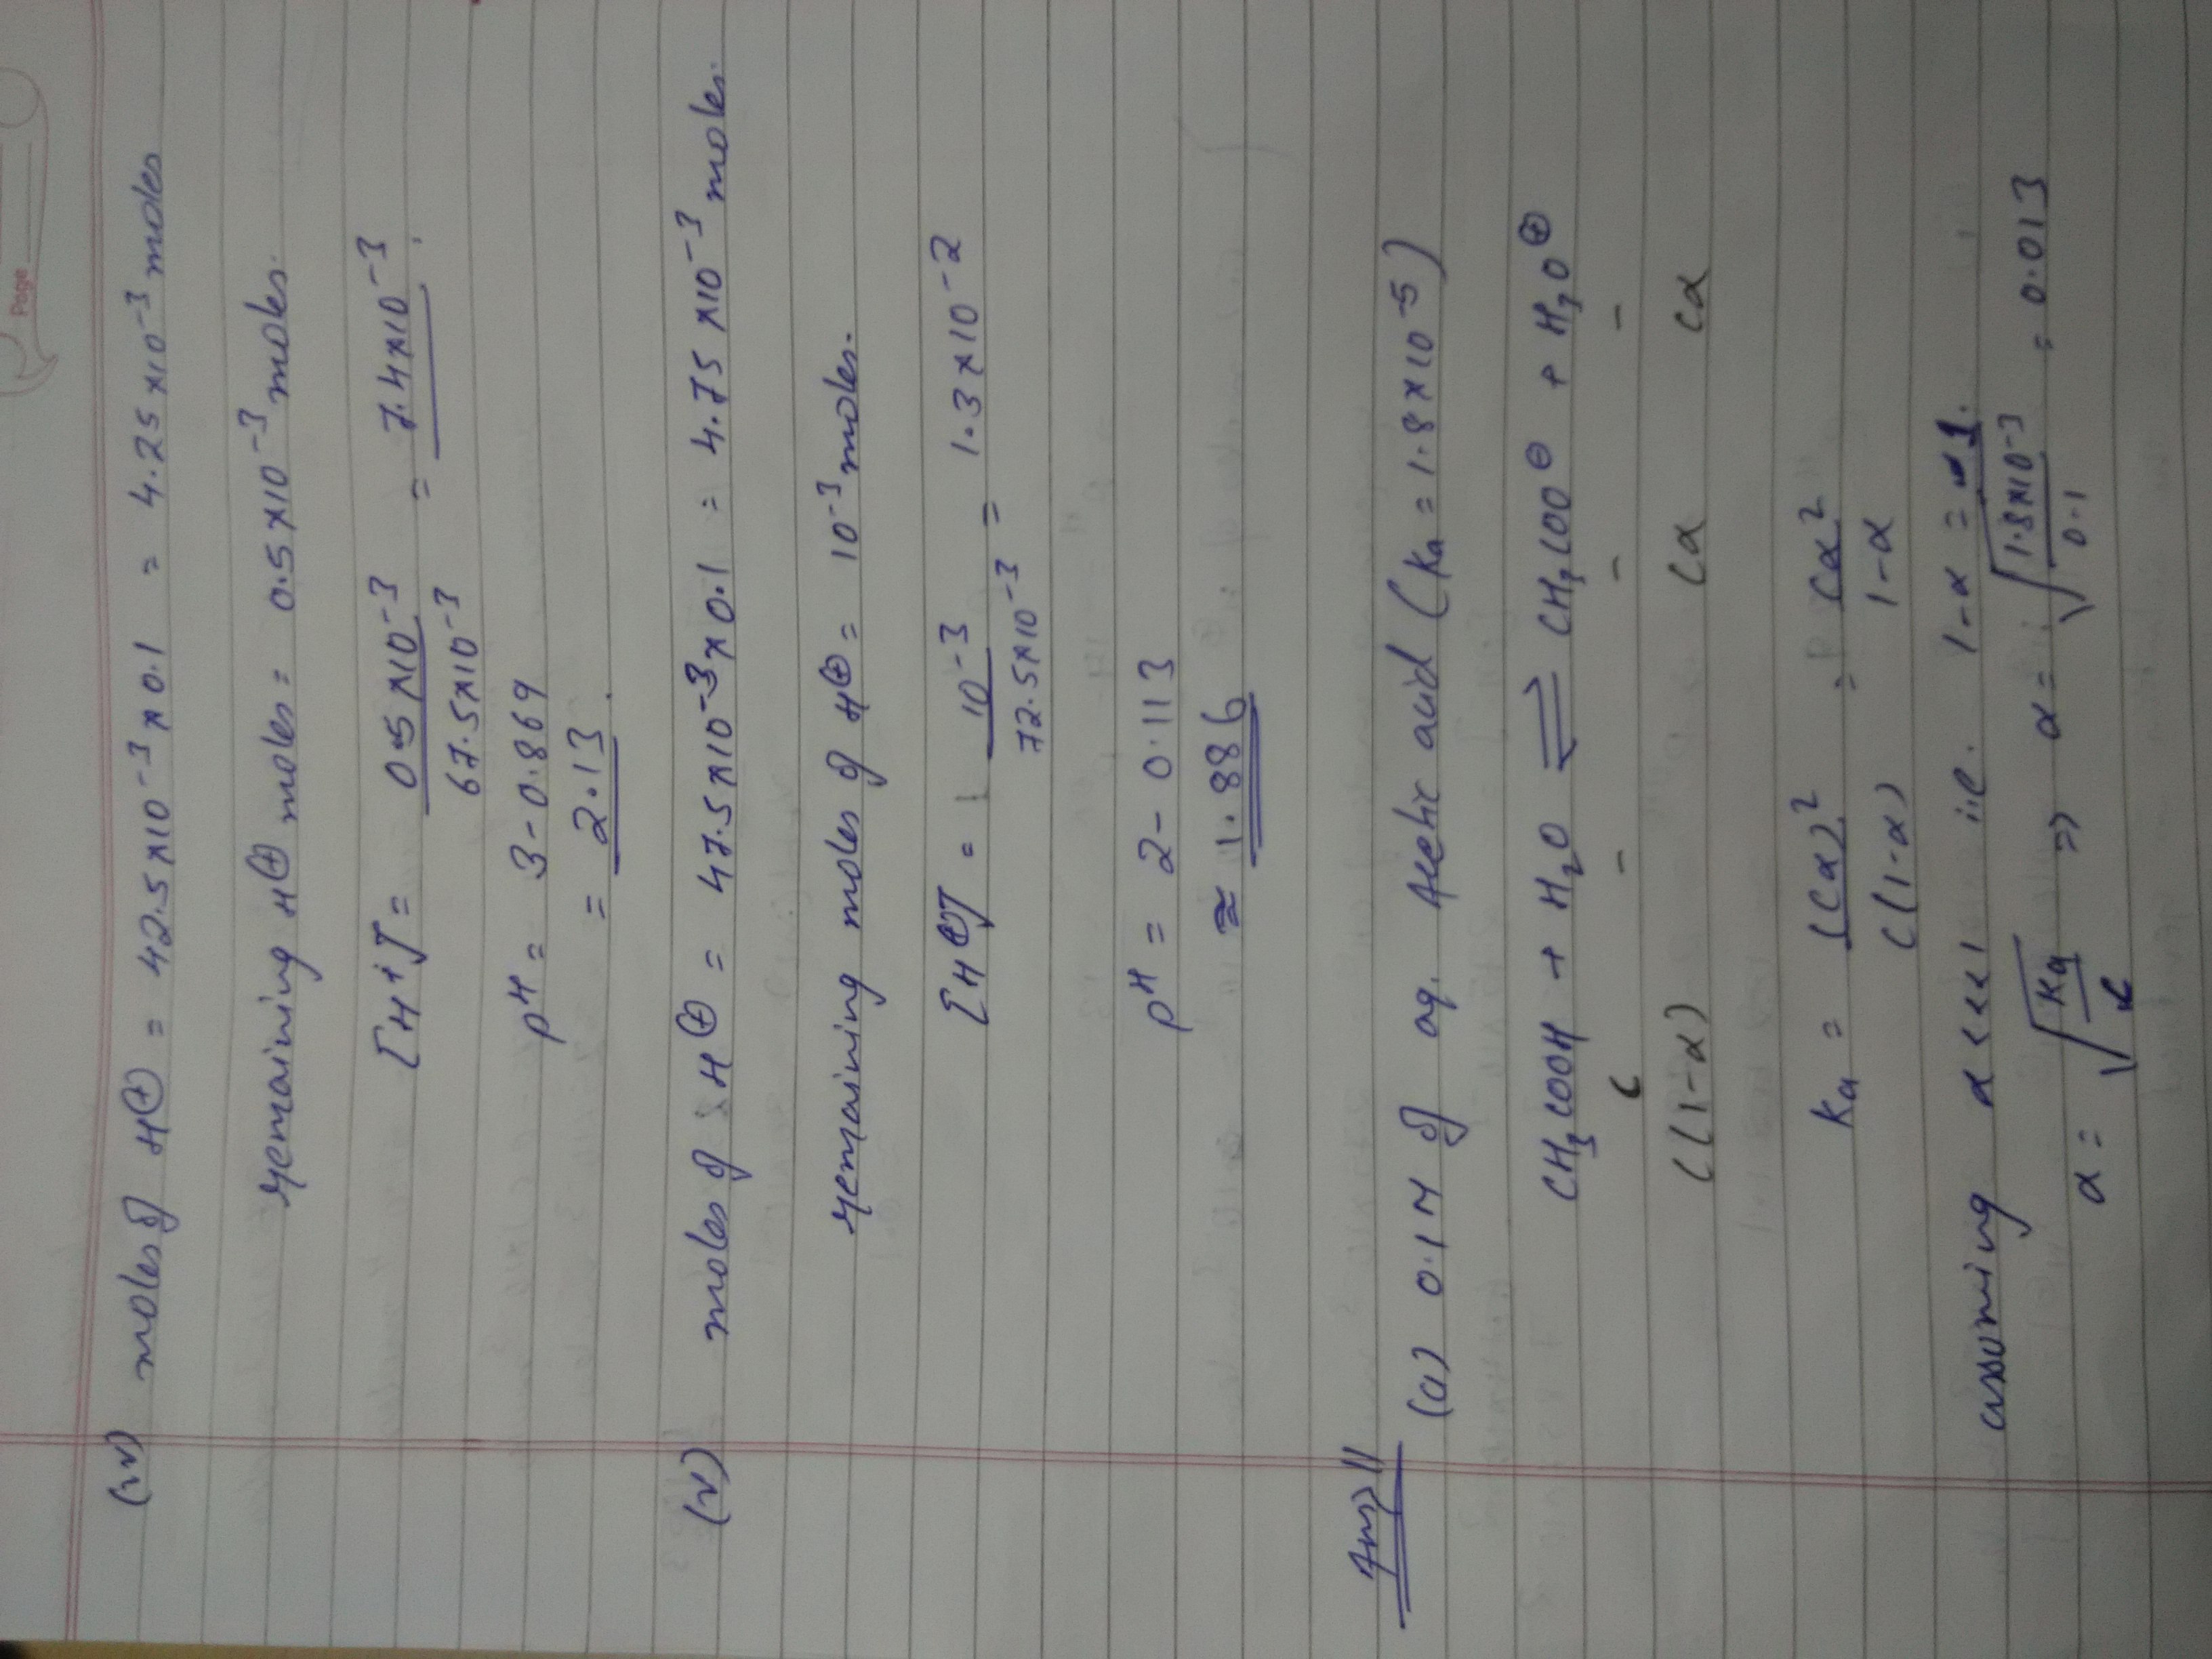 Page
(iv) moles of H⊕ = 42.5×10⁻³×0.1 = 4.25×10⁻³ moles
remaining H⊕ moles = 0.5×10⁻³ moles.
[H⁺] = 0.5×10⁻³ / 67.5×10⁻³ = 7.4×10⁻³.
pH = 3-0.869
= 2.13.
(v) moles of H⊕ = 47.5×10⁻³×0.1 = 4.75×10⁻³ moles.
remaining moles of H⊕ = 10⁻³ moles.
[H⊕] = 10⁻³ / 72.5×10⁻³ = 1.3×10⁻²
pH = 2-0.113
≈ 1.886
Ans 11
(a) 0.1M of aq. Acetic acid (Ka = 1.8×10⁻⁵)
CH₃COOH + H₂O ⇌ CH₃COO⊖ + H₃O⊕
C - - -
C(1-α) Cα Cα
Ka = (Cα)² / C(1-α) = Cα² / 1-α
assuming α<<<1 i.e. 1-α = 1.
α = √Ka/C ⇒ α = √1.8×10⁻³/0.1 = 0.013